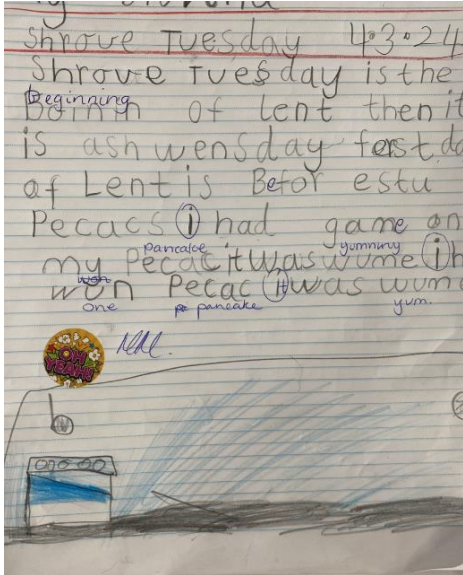 Shrove Tuesday 4.3.24
Shrove Tuesday is the
beginning
of Lent then it
is ash wensday ferst
of Lent is Befor estu
Pecacs i had game on
pancake yummy
my Pecac it was wume i
won Pecac it was wum
one pancake yum.
OH
YEAH!